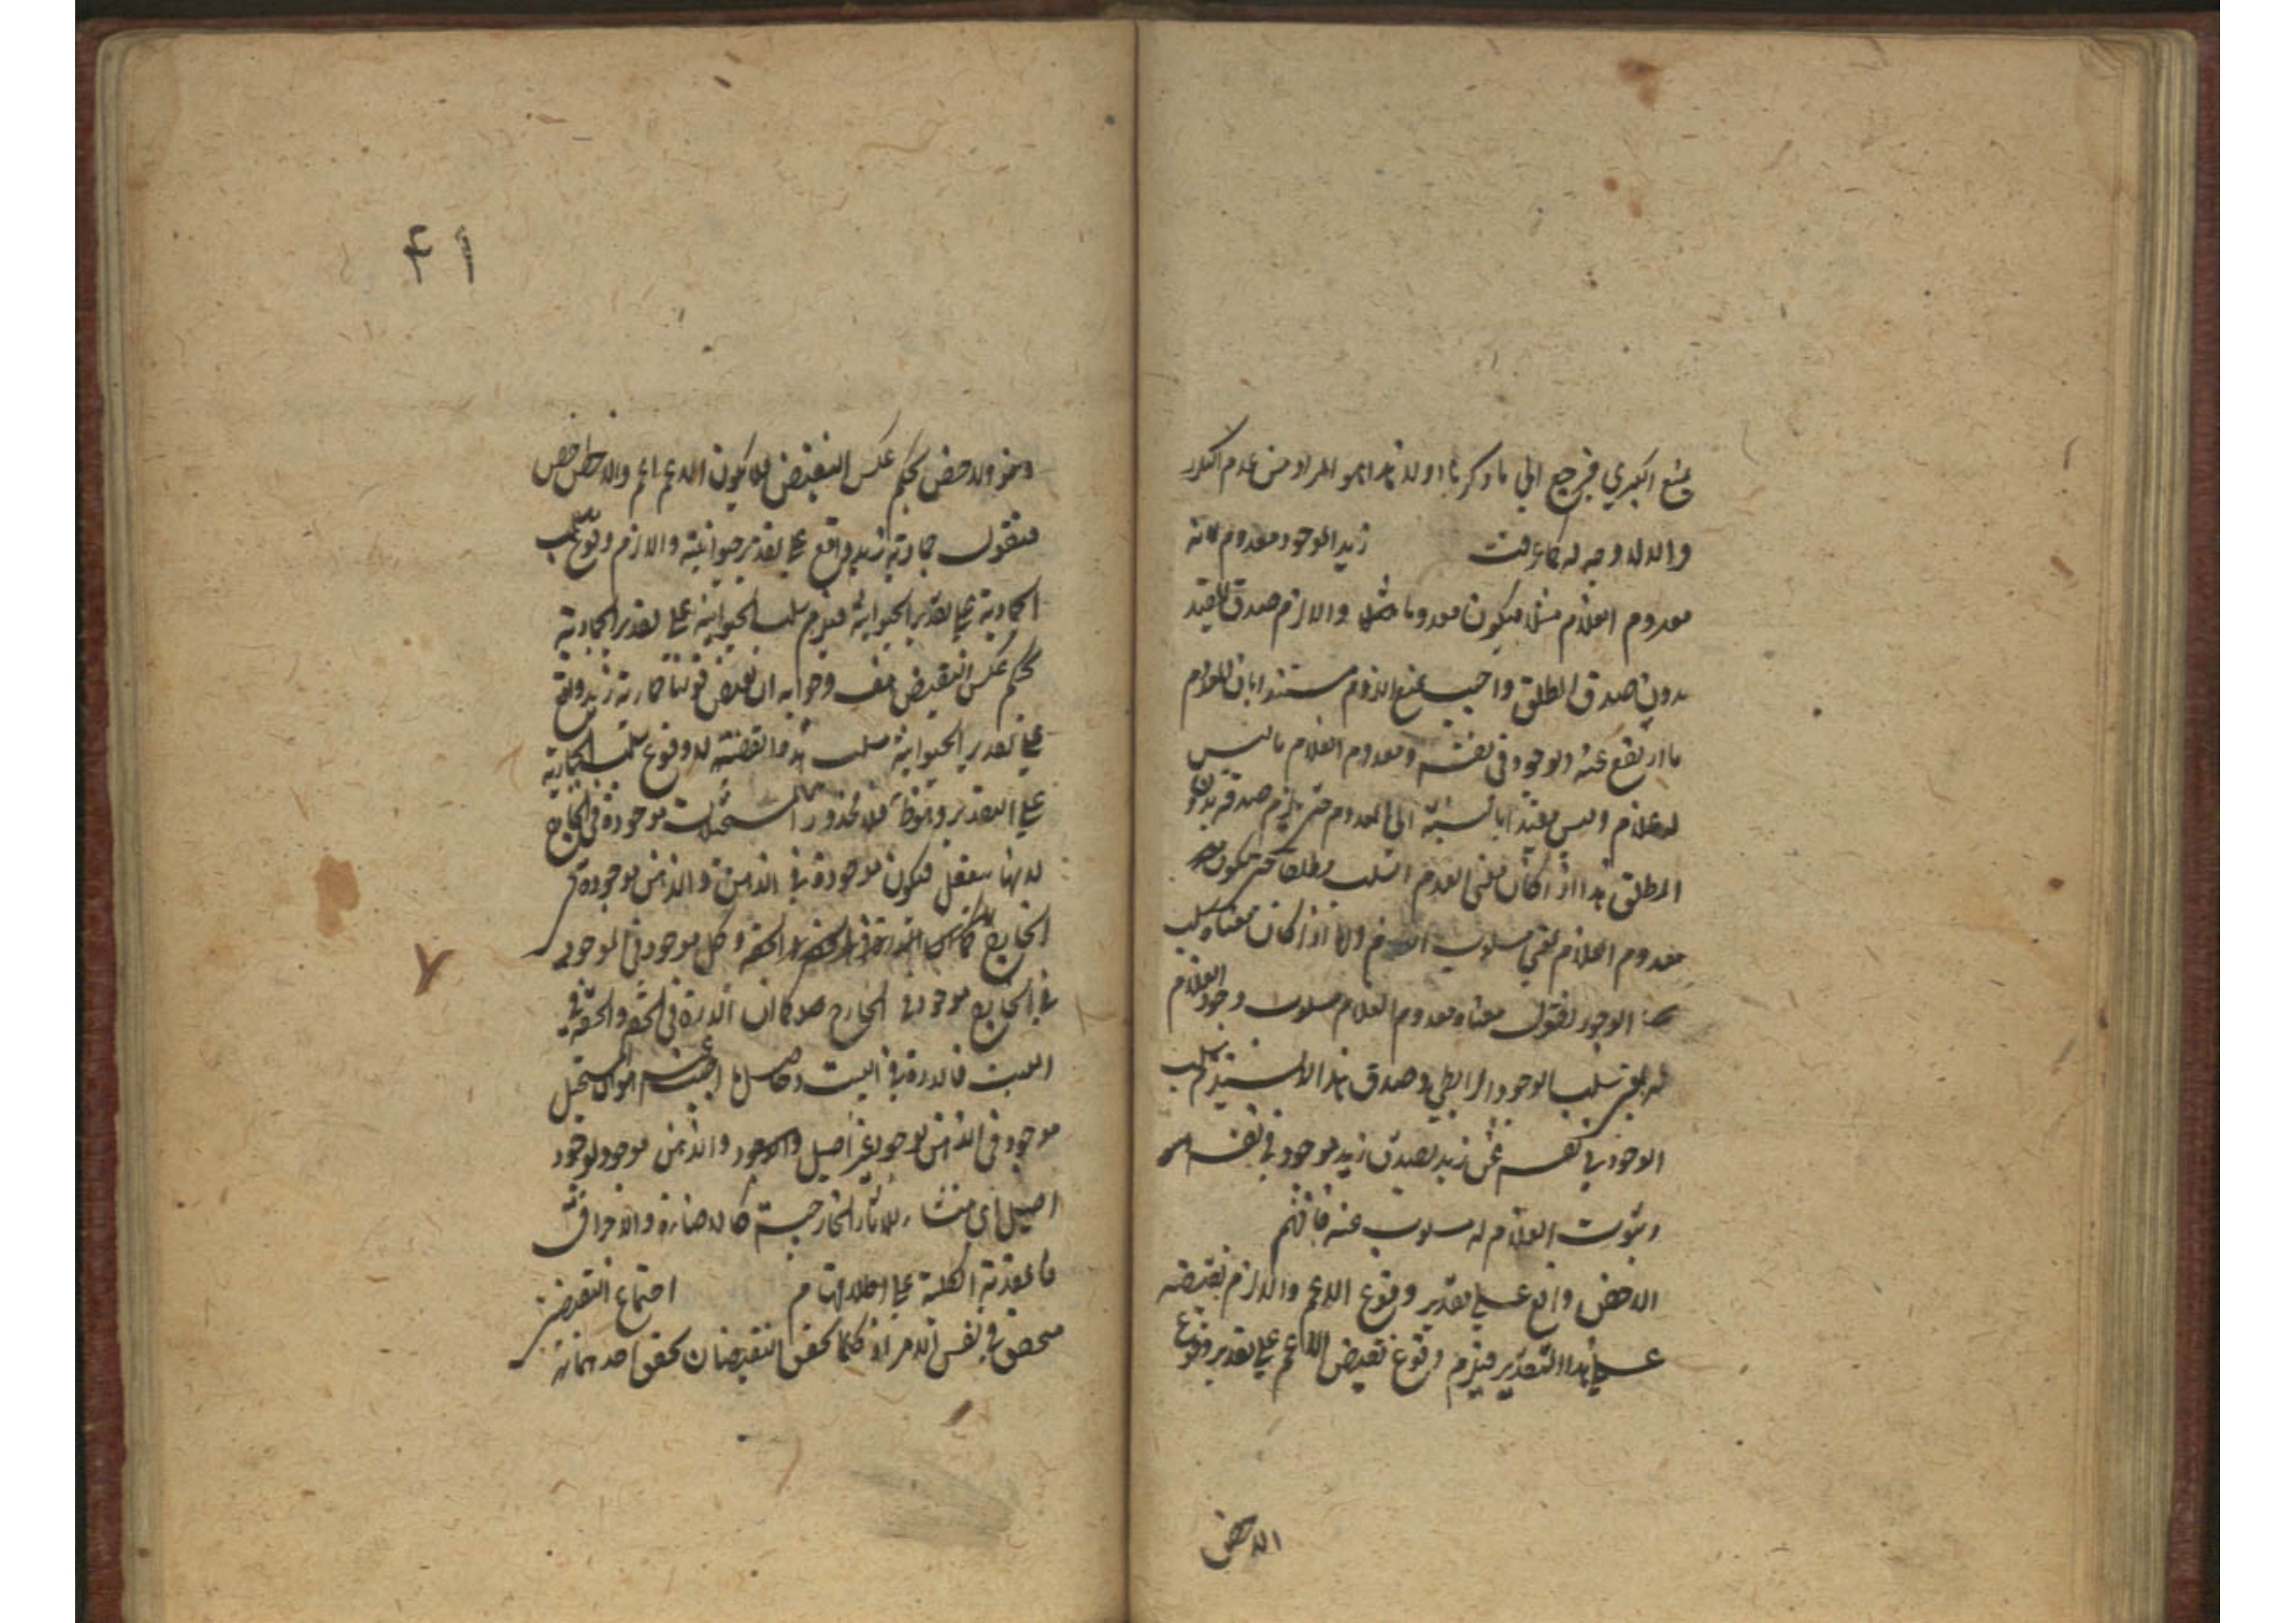 ويمنع الكبرى فيرجع الى ما ذكرنا اولا هذا هو المراد من عدم التكرر
والا لا وجه له كما عرفت زيد الموجود معدوم لانه
معدوم الغلام مثلا فيكون معدوما والا لزم صدق المقيد
بدون صدق المطلق واجيب بمنع اللزوم مستندا بان المعدوم
ما ارتفع عنه الوجود في نفسه ومعدوم الغلام ما ليس
له غلام وليس مقيدا بالنسبة الى المعدوم حتى يلزم صدقه بدون
المطلق هذا اذا كان معنى العدم السلب مطلقا حتى يكون
معدوم الغلام بمعنى مسلوب الغلام واما اذا كان معناه سلب
الوجود فنقول معناه معدوم الغلام مسلوب وجود الغلام
له بمعنى سلب الوجود الرابطي وصدق هذا لا يستلزم سلب
الوجود في نفسه عن زيد يصدق زيد موجود في نفسه
وثبوت الغلام له مسلوب عنه فافهم
الاخص واقع على تقدير وقوع الاعم والا لزم نقيضه
على هذا التقدير فيلزم وقوع نقيض الاعم على تقدير وقوع
الاخص
٤١
الاخص بحكم عكس النقيض فلا يكون الاعم اعم والاخص اخص
فنقول جمادية زيد واقع على تقدير حيوانيته والا لزم وقوع سلب
الجمادية على تقدير الحيوانية فيلزم سلب الحيوانية على تقدير الجمادية
بحكم عكس النقيض هف وجوابه ان نقيض قولنا جمادية زيد واقع
على تقدير الحيوانية سلب هذه القضية لا وقوع سلب الجمادية
على التقدير فلا محذور المستحيلات موجودة في الخارج
لانها تتعقل فتكون موجودة في الذهن والذهن موجود في
الخارج وكل موجود في الموجود
في الخارج موجود في الخارج كما ان الدرة في الحقة والحقة في
البيت فالدرة في البيت المستحيل
موجود في الذهن بوجود غير اصيل والذهن موجود بوجود
اصيل اي منشاء للاثار الخارجية كالاضاءة والاحراق
فالمقدمة الكلية على اطلاقها م اجتماع النقيضين
متحقق في نفس الامر اذ كلما تحقق النقيضان تحقق احدهما